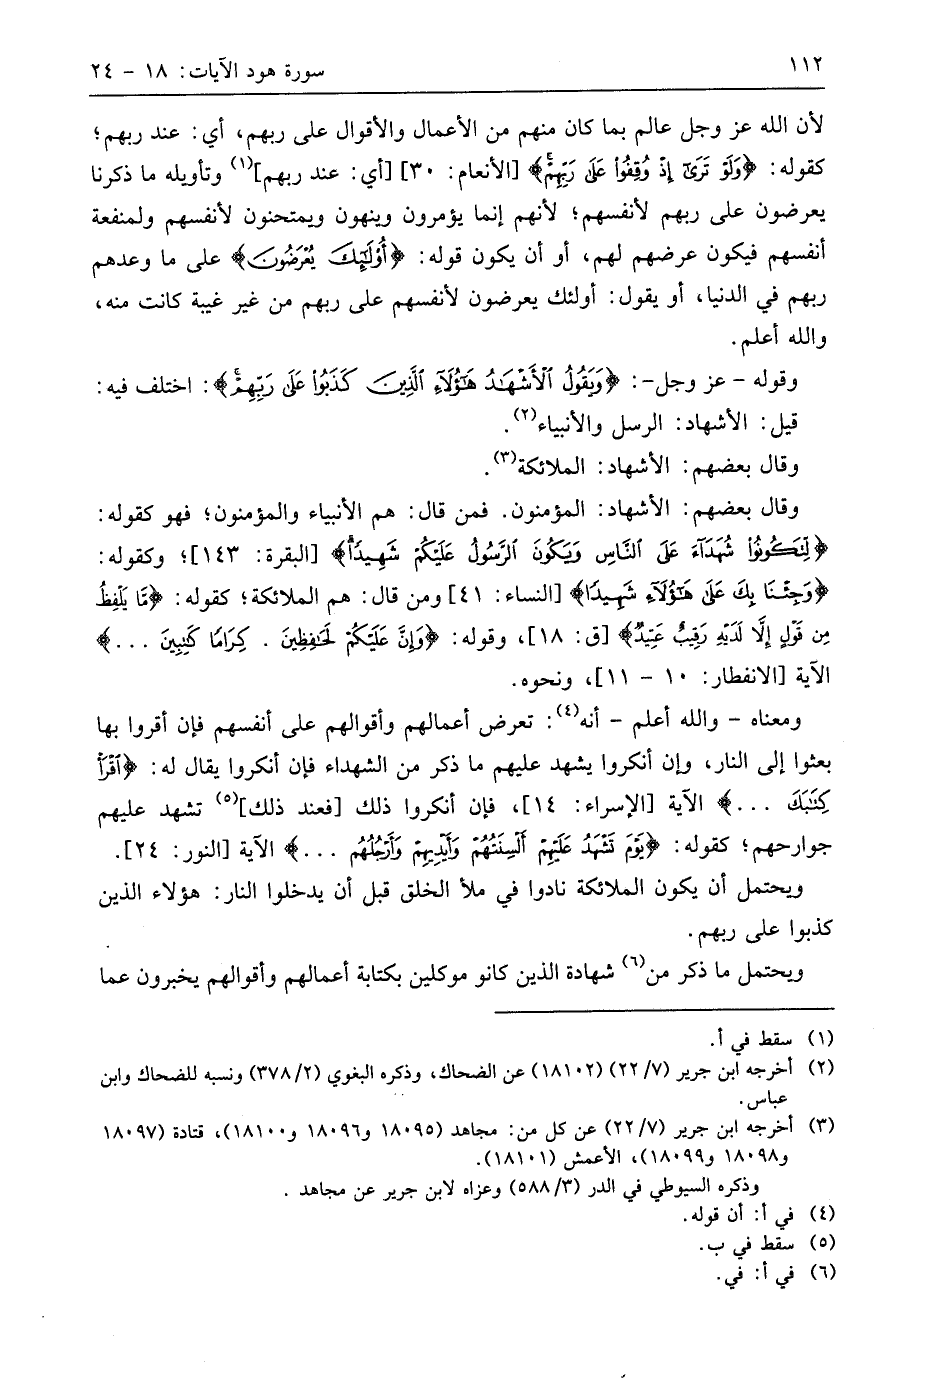 ١١٢
سورة هود الآيات: ١٨ - ٢٤
لأن الله عز وجل عالم بما كان منهم من الأعمال والأقوال على ربهم، أي: عند ربهم؛
كقوله: ﴿وَلَوْ تَرَىٰٓ إِذْ وُقِفُوا۟ عَلَىٰ رَبِّهِمْ﴾ [الأنعام: ٣٠] [أي: عند ربهم](١) وتأويله ما ذكرنا
يعرضون على ربهم لأنفسهم؛ لأنهم إنما يؤمرون وينهون ويمتحنون لأنفسهم ولمنفعة
أنفسهم فيكون عرضهم لهم، أو أن يكون قوله: ﴿أُو۟لَٰٓئِكَ يُعْرَضُونَ﴾ على ما وعدهم
ربهم في الدنيا، أو يقول: أولئك يعرضون لأنفسهم على ربهم من غير غيبة كانت منه،
والله أعلم.
وقوله - عز وجل-: ﴿وَيَقُولُ ٱلْأَشْهَٰدُ هَٰٓؤُلَآءِ ٱلَّذِينَ كَذَبُوا۟ عَلَىٰ رَبِّهِمْ﴾: اختلف فيه:
قيل: الأشهاد: الرسل والأنبياء(٢).
وقال بعضهم: الأشهاد: الملائكة(٣).
وقال بعضهم: الأشهاد: المؤمنون. فمن قال: هم الأنبياء والمؤمنون؛ فهو كقوله:
﴿لِّتَكُونُوا۟ شُهَدَآءَ عَلَى ٱلنَّاسِ وَيَكُونَ ٱلرَّسُولُ عَلَيْكُمْ شَهِيدًا﴾ [البقرة: ١٤٣]؛ وكقوله:
﴿وَجِئْنَا بِكَ عَلَىٰ هَٰٓؤُلَآءِ شَهِيدًا﴾ [النساء: ٤١] ومن قال: هم الملائكة؛ كقوله: ﴿مَّا يَلْفِظُ
مِن قَوْلٍ إِلَّا لَدَيْهِ رَقِيبٌ عَتِيدٌ﴾ [ق: ١٨]، وقوله: ﴿وَإِنَّ عَلَيْكُمْ لَحَٰفِظِينَ . كِرَامًا كَٰتِبِينَ ...﴾
الآية [الانفطار: ١٠ - ١١]، ونحوه.
ومعناه - والله أعلم - أنه(٤): تعرض أعمالهم وأقوالهم على أنفسهم فإن أقروا بها
بعثوا إلى النار، وإن أنكروا يشهد عليهم ما ذكر من الشهداء فإن أنكروا يقال له: ﴿ٱقْرَأْ
كِتَٰبَكَ ...﴾ الآية [الإسراء: ١٤]، فإن أنكروا ذلك [فعند ذلك](٥) تشهد عليهم
جوارحهم؛ كقوله: ﴿يَوْمَ تَشْهَدُ عَلَيْهِمْ أَلْسِنَتُهُمْ وَأَيْدِيهِمْ وَأَرْجُلُهُم ...﴾ الآية [النور: ٢٤].
ويحتمل أن يكون الملائكة نادوا في ملأ الخلق قبل أن يدخلوا النار: هؤلاء الذين
كذبوا على ربهم.
ويحتمل ما ذكر من(٦) شهادة الذين كانو موكلين بكتابة أعمالهم وأقوالهم يخبرون عما
(١) سقط في أ.
(٢) أخرجه ابن جرير (٢٢/٧) (١٨١٠٢) عن الضحاك، وذكره البغوي (٣٧٨/٢) ونسبه للضحاك وابن
عباس.
(٣) أخرجه ابن جرير (٢٢/٧) عن كل من: مجاهد (١٨٠٩٥ و١٨٠٩٦ و١٨١٠٠)، قتادة (١٨٠٩٧
و١٨٠٩٨ و١٨٠٩٩)، الأعمش (١٨١٠١).
وذكره السيوطي في الدر (٥٨٨/٣) وعزاه لابن جرير عن مجاهد .
(٤) في أ: أن قوله.
(٥) سقط في ب.
(٦) في أ: في.